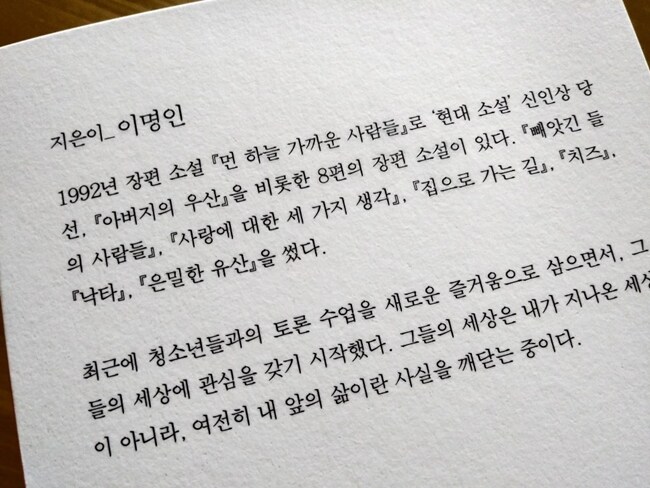 지은이_ 이명인
1992년 장편 소설 『먼 하늘 가까운 사람들』로 ‘현대 소설’ 신인상 당
선, 『아버지의 우산』을 비롯한 8편의 장편 소설이 있다. 『빼앗긴 들
의 사람들』, 『사랑에 대한 세 가지 생각』, 『집으로 가는 길』, 『치즈』,
『낙타』, 『은밀한 유산』을 썼다.
최근에 청소년들과의 토론 수업을 새로운 즐거움으로 삼으면서, 그
들의 세상에 관심을 갖기 시작했다. 그들의 세상은 내가 지나온 세상
이 아니라, 여전히 내 앞의 삶이란 사실을 깨닫는 중이다.